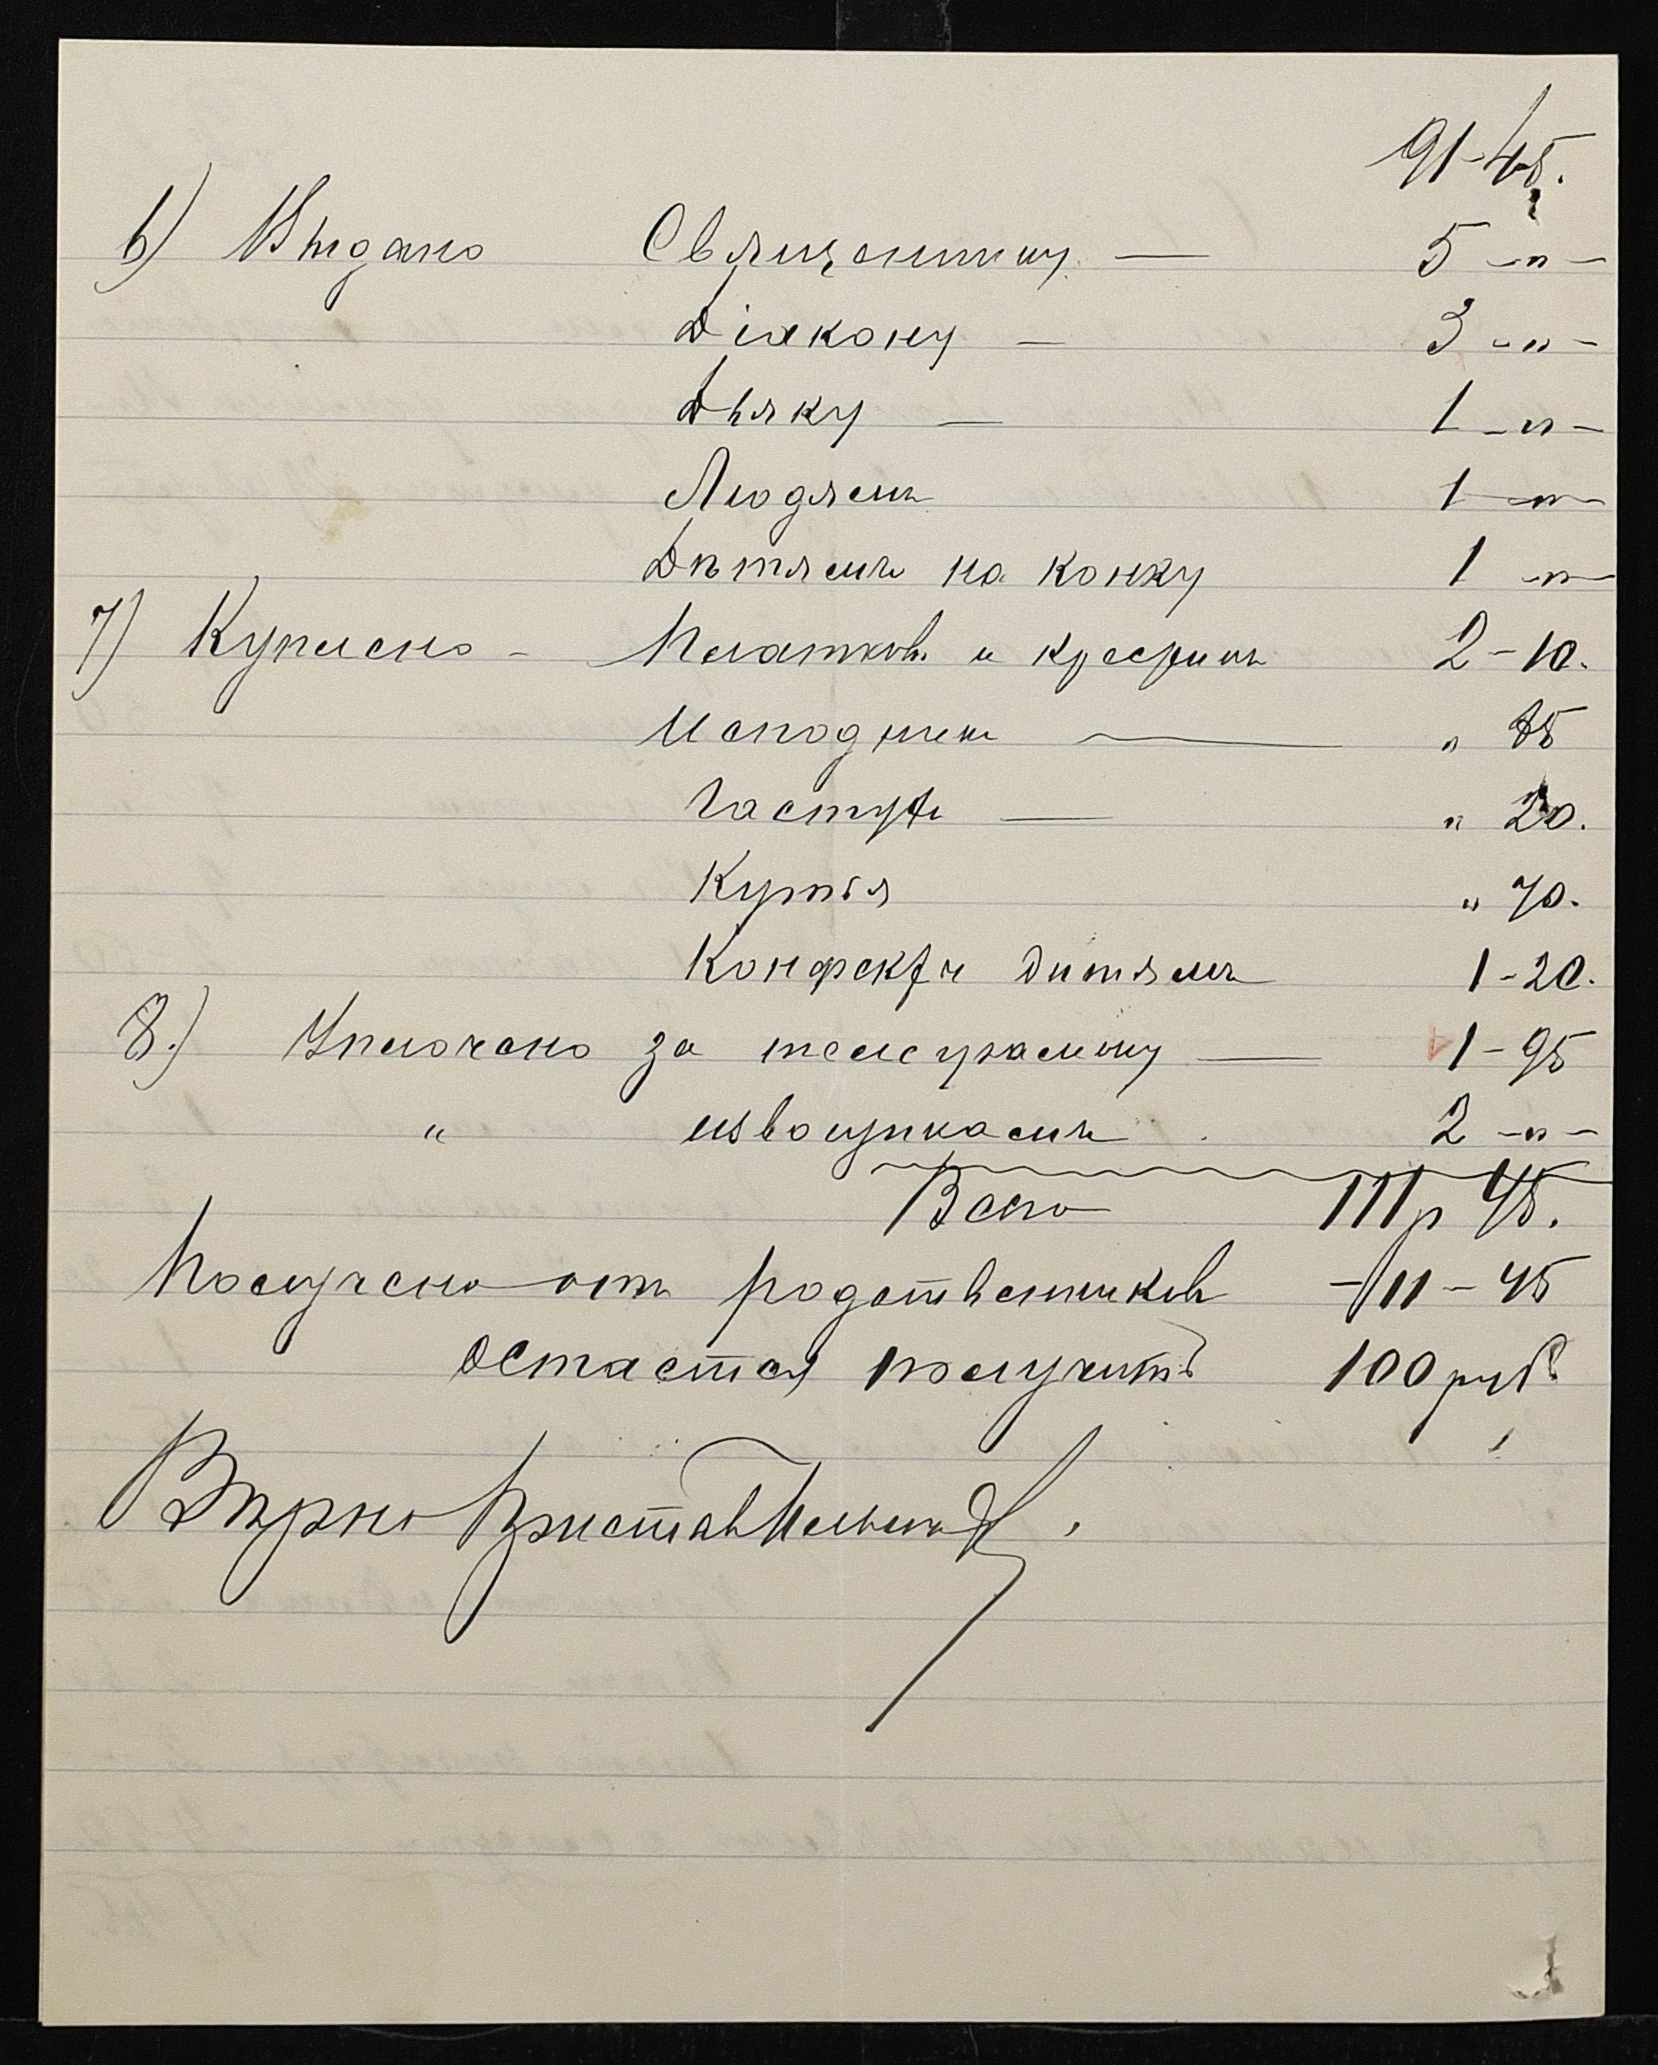 91-45.
6) Выдано Священнику — 5 -"-
Діякону — 3 -"-
Дьяку — 1 -"-
Людямъ 1 -"-
Дѣтямъ на конку 1 -"-
7) Куплено - Платковъ и 2-10.
Исподнее — " 85
" 20.
Кутья " 70.
Конфекты дитямъ 1-20.
8.) Уплочено за телеграмму — 1-95
" извощикамъ 2 -"-
Всего 111р 45.
Получено отъ родственниковъ - 11-45
Остается получить 100 руб
Вѣрно Приставъ